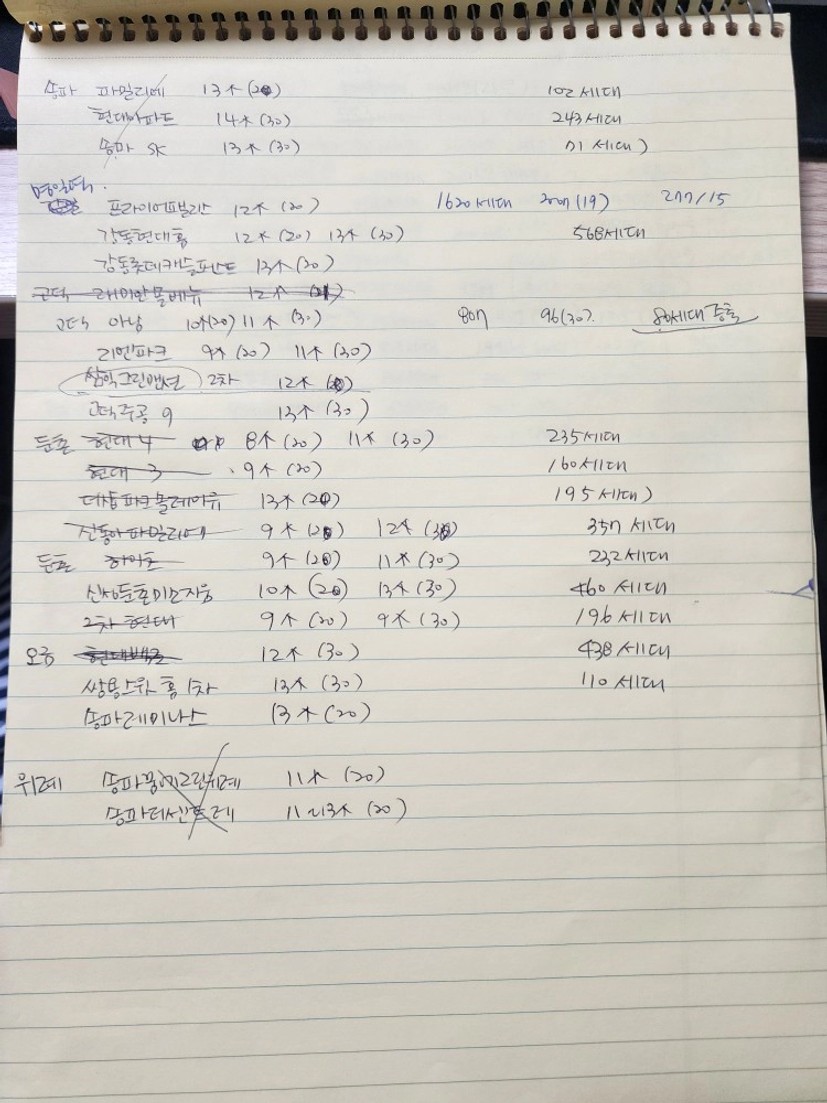 송파 파밀리에 13억 (20) 102세대
현대아파트 14억 (30) 243세대
송파 SK 13억 (30) 71세대)
명일역.
프라이어팰리스 12억 (20) 1620세대 2007 (19) 277/15
강동현대홈 12억 (20) 13억 (30) 568세대
강동롯데캐슬퍼스트 13억 (20)
고덕 래미안힐 12억
고덕 아남 10억(20) 11억 (30) 807 96(30). 80세대 증축
리엔파크 9억 (20) 11억 (30)
삼익그린맨션 2차 12억
고덕주공 9 13억 (30)
둔촌 현대 4 8억 (20) 11억 (30) 235세대
현대 3 9억 (20) 160세대
더샵파크솔레이유 13억 (20) 195세대)
신동아파밀리에 9억 (20) 12억 (30) 357세대
둔촌 하이츠 9억 (20) 11억 (30) 232세대
신성둔촌미소지움 10억 (20) 13억 (30) 460세대
2차 현대 9억 (20) 9억 (30) 196세대
오금 현대백조 12억 (30) 438세대
쌍용스윗홈 1차 13억 (30) 110세대
송파레미니스 13억 (20)
위례 송파꿈에그린위례 11억 (20)
송파더센트레 11~13억 (20)